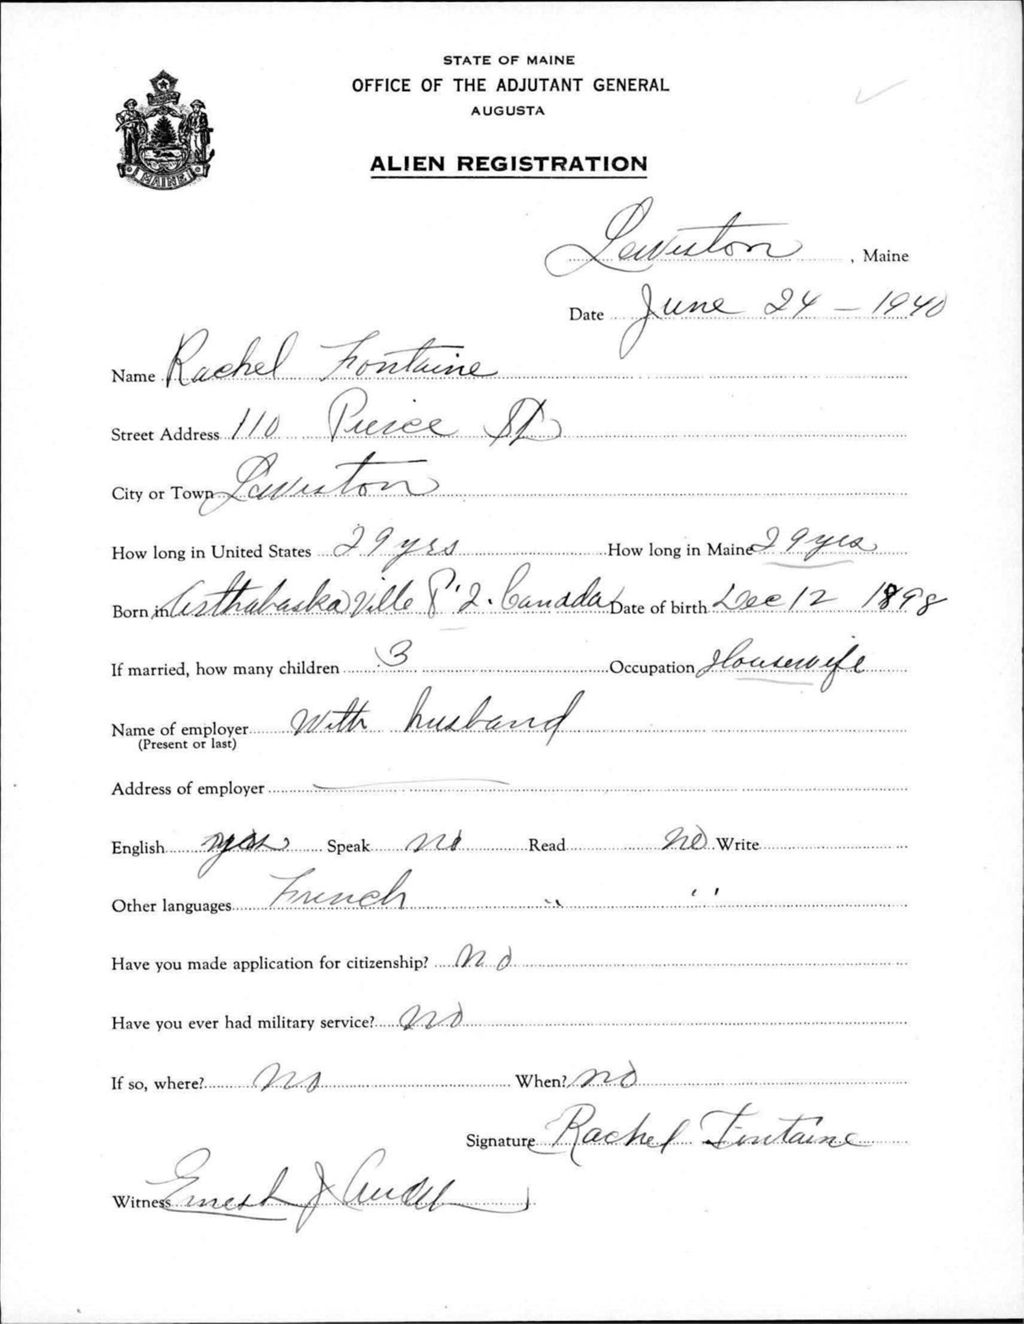 STATE OF MAINE
OFFICE OF THE ADJUTANT GENERAL
AUGUSTA
ALIEN REGISTRATION
MAINE
Lewiston, Maine
Date June 24 - 1940
Name Rachel Fontaine
Street Address 110 Pierce St
City or Town Lewiston
How long in United States 29 yrs How long in Maine 29 yrs
Born in Arthabaskaville P.Q. Canada Date of birth Dec 12 1898
If married, how many children 3 Occupation Housewife
Name of employer With husband
(Present or last)
Address of employer —
English yes Speak no Read no Write
Other languages French " "
Have you made application for citizenship? no
Have you ever had military service? no
If so, where? no When? no
Signature Rachel Fontaine
Witness Ernest J